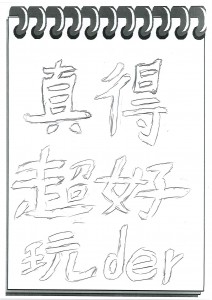 真得
超好
玩der